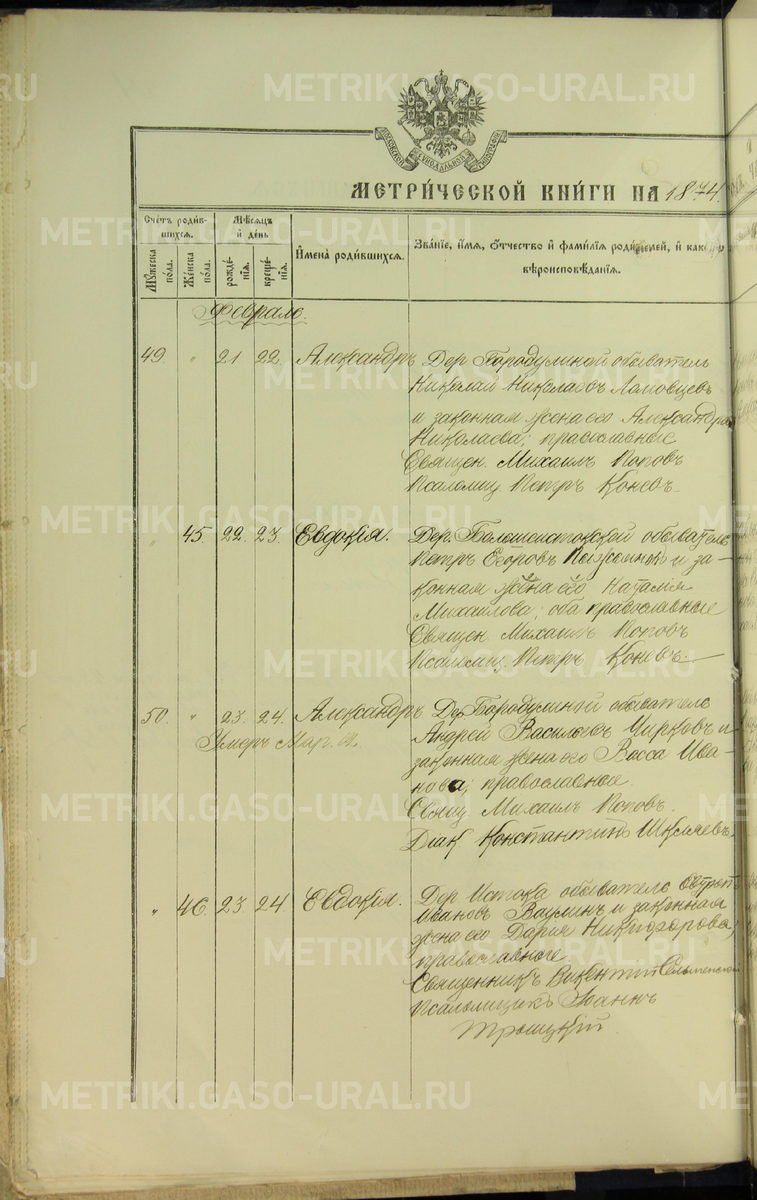 METRIKI.GASO-URAL.RU
МОСКОВСКОЙ СѴНОДАЛЬНОЙ ТИПОГРАФІИ
МЕТРИ́ЧЕСКОЙ КНИ́ГИ НА 1874.
Сче́тъ роди́в-
шихся.
Му́жеска
по́ла.
Же́нска
по́ла.
Мѣ́сяцъ
и҆ де́нь
рожде́-
нїѧ.
креще́-
нїѧ.
И҆мена̀ роди́вшихся.
Зва́нїе, и҆́мя, ѻ҆́тчество и҆ фами́лїѧ роди́телей, и҆ како́
вѣроисповѣ́данїѧ.
Февраль.
49 " 21 22 Александръ Дер Бородулиной обыватель
Николай Николаевъ Ламовцевъ
и законная жена его Александра
Николаева; православные
Священ. Михаилъ Поповъ
Псаломщ. Петръ Коневъ
" 45. 22. 23. Евдокія. Дер. обыватель
Петръ Егоровъ и за-
конная жена его Наталія
Михайлова; оба православные
Священ Михаилъ Поповъ
Псаломщ. Петръ Коневъ.
50. " 23. 24. Александръ Дер Бородулиной обыватель
Умеръ Мар. Андрей Васильевъ Чирковъ и
законная жена его Васса Ива-
нова; православные.
Свящ. Михаилъ Поповъ.
Діак Константинъ Шкляевъ.
" 46. 23. 24 Евдокія. Дер Истока обыватель
Ивановъ Ваулинъ и законная
жена его Дарія Никифорова;
православные
Священникъ Викентій
Псаломщикъ Іоаннъ
Троицкій.